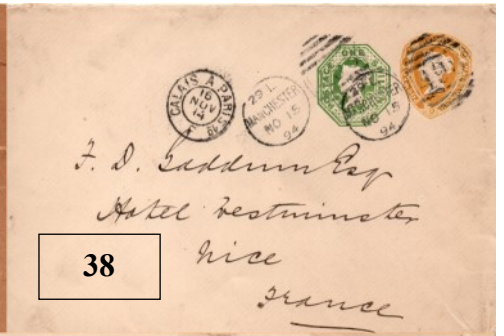 CALAIS A PARIS
16
NOV
MANCHESTER
NO 15
94
ONE
MANCHESTER
NO 15
94
F. D. Gaddum Esq
Hotel Westminster
Nice
France
38